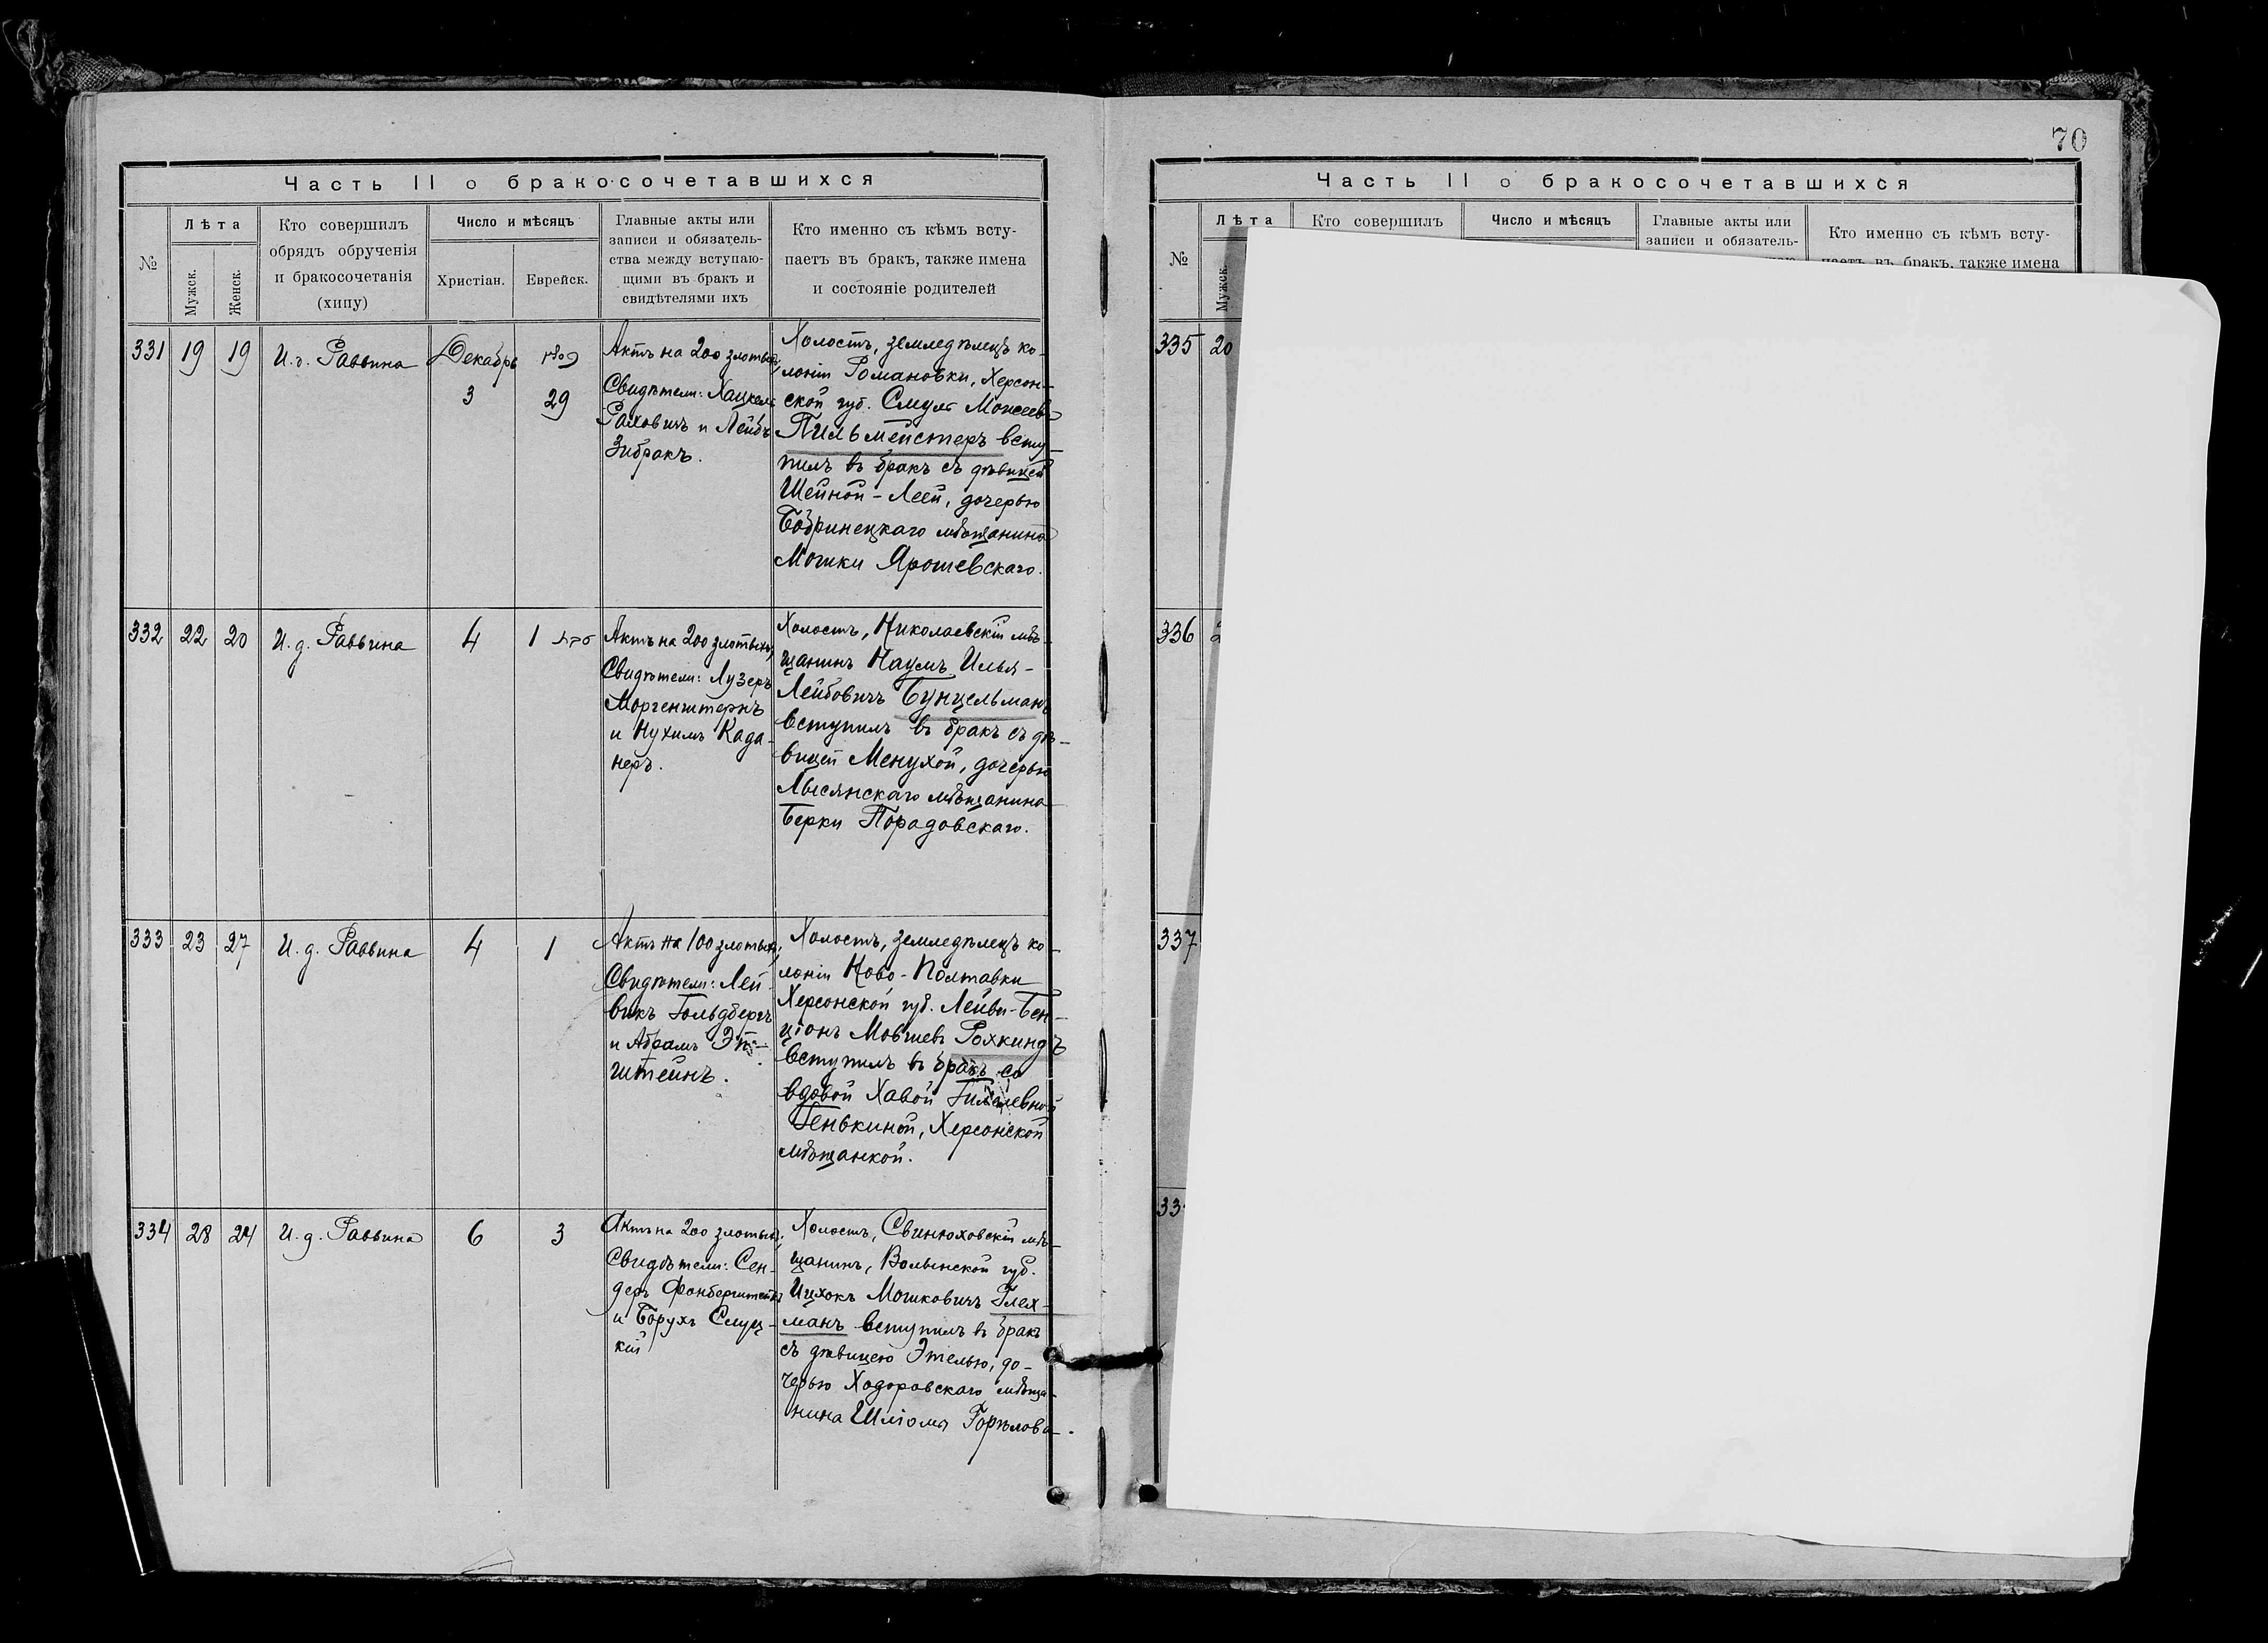 Часть II о бракосочетавшихся
№
Лѣта
Мужск.
Женск.
Кто совершилъ
обрядъ обрученія
и бракосочетанія
(хипу)
Число и мѣсяцъ
Христіан.
Еврейск.
Главные акты или
записи и обязатель-
ства между вступаю-
щими въ бракъ и
свидѣтелями ихъ
Кто именно съ кѣмъ всту-
паетъ въ бракъ, также имена
и состояніе родителей
331 19 19
И. д. Раввина
Декабрь
3
29
Актъ на 200 злотыхъ,
Свидѣтели: Хацкель
Раховичъ и Лейбъ
Зибракъ.
Холостъ, земледѣлецъ ко-
лоніи Романовки, Херсон-
ской губ. Смулъ Моисеевъ
Пильмейстеръ всту-
пилъ въ бракъ съ дѣвицей
Шейной-Леей, дочерью
Бобринецкаго мѣщанина
Мошки Ярошевскаго.
332 22 20
И. д. Раввина
4
1
Актъ на 200 злотыхъ,
Свидѣтели: Лузеръ
Моргенштернъ
и Нухимъ Када-
неръ.
Холостъ, Николаевскій мѣ-
щанинъ Наумъ Илья-
Лейбовичъ Бунцельманъ
вступилъ въ бракъ съ дѣ-
вицей Менухой, дочерью
Лысянскаго мѣщанина
Берки Порадовскаго.
333 23 27
И. д. Раввина
4
1
Актъ на 100 злотыхъ,
Свидѣтели: Лей-
викъ Гольдбергъ
и Абрамъ
штейнъ.
Холостъ, земледѣлецъ ко-
лоніи Ново-Полтавки
Херсонской губ. Лейви-Бен-
ціонъ Мовшевъ Рохкиндъ
вступилъ въ бракъ со
вдовой Хавой
Генькиной, Херсонской
мѣщанкой.
334 28 24
И. д. Раввина
6
3
Актъ на 200 злотыхъ,
Свидѣтели: Сен-
деръ
и Борухъ Слуц-
кій
Холостъ, Свинюховскій мѣ-
щанинъ, Волынской губ.
Ицхокъ Мошковичъ Глех-
манъ вступилъ въ бракъ
съ дѣвицею Этелью, до-
черью Ходоровскаго мѣща-
нина Шліомы Горѣлова.
70
Часть II о бракосочетавшихся
№
Лѣта
Мужск.
Кто совершилъ
Число и мѣсяцъ
Главные акты или
записи и обязатель-
Кто именно съ кѣмъ всту-
паетъ въ бракъ, также имена
335 20
336
337